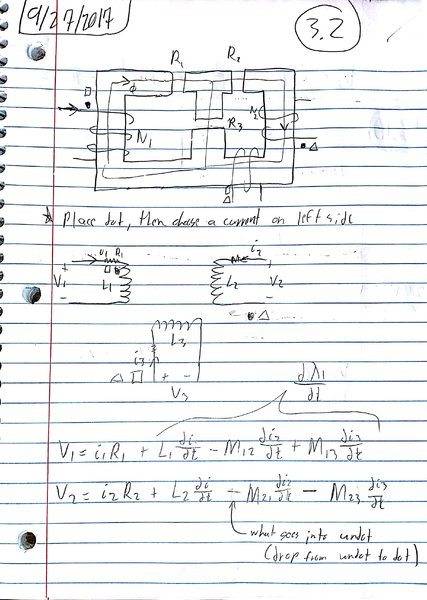 9/27/2017
3.2
R₁ R₂
φ
N₁ R₃ N₂
Place dot, then chose a current on left side
V₁ + - i₁ R₁ L₁
i₂ L₂ + - V₂
L₃
i₃ + -
V₃
dλ₁/dt
V₁ = i₁R₁ + L₁ di/dt - M₁₂ di₂/dt + M₁₃ di₃/dt
V₂ = i₂R₂ + L₂ di/dt - M₂₁ di₂/dt - M₂₃ di₃/dt
what goes into undot
(drop from undot to dot)